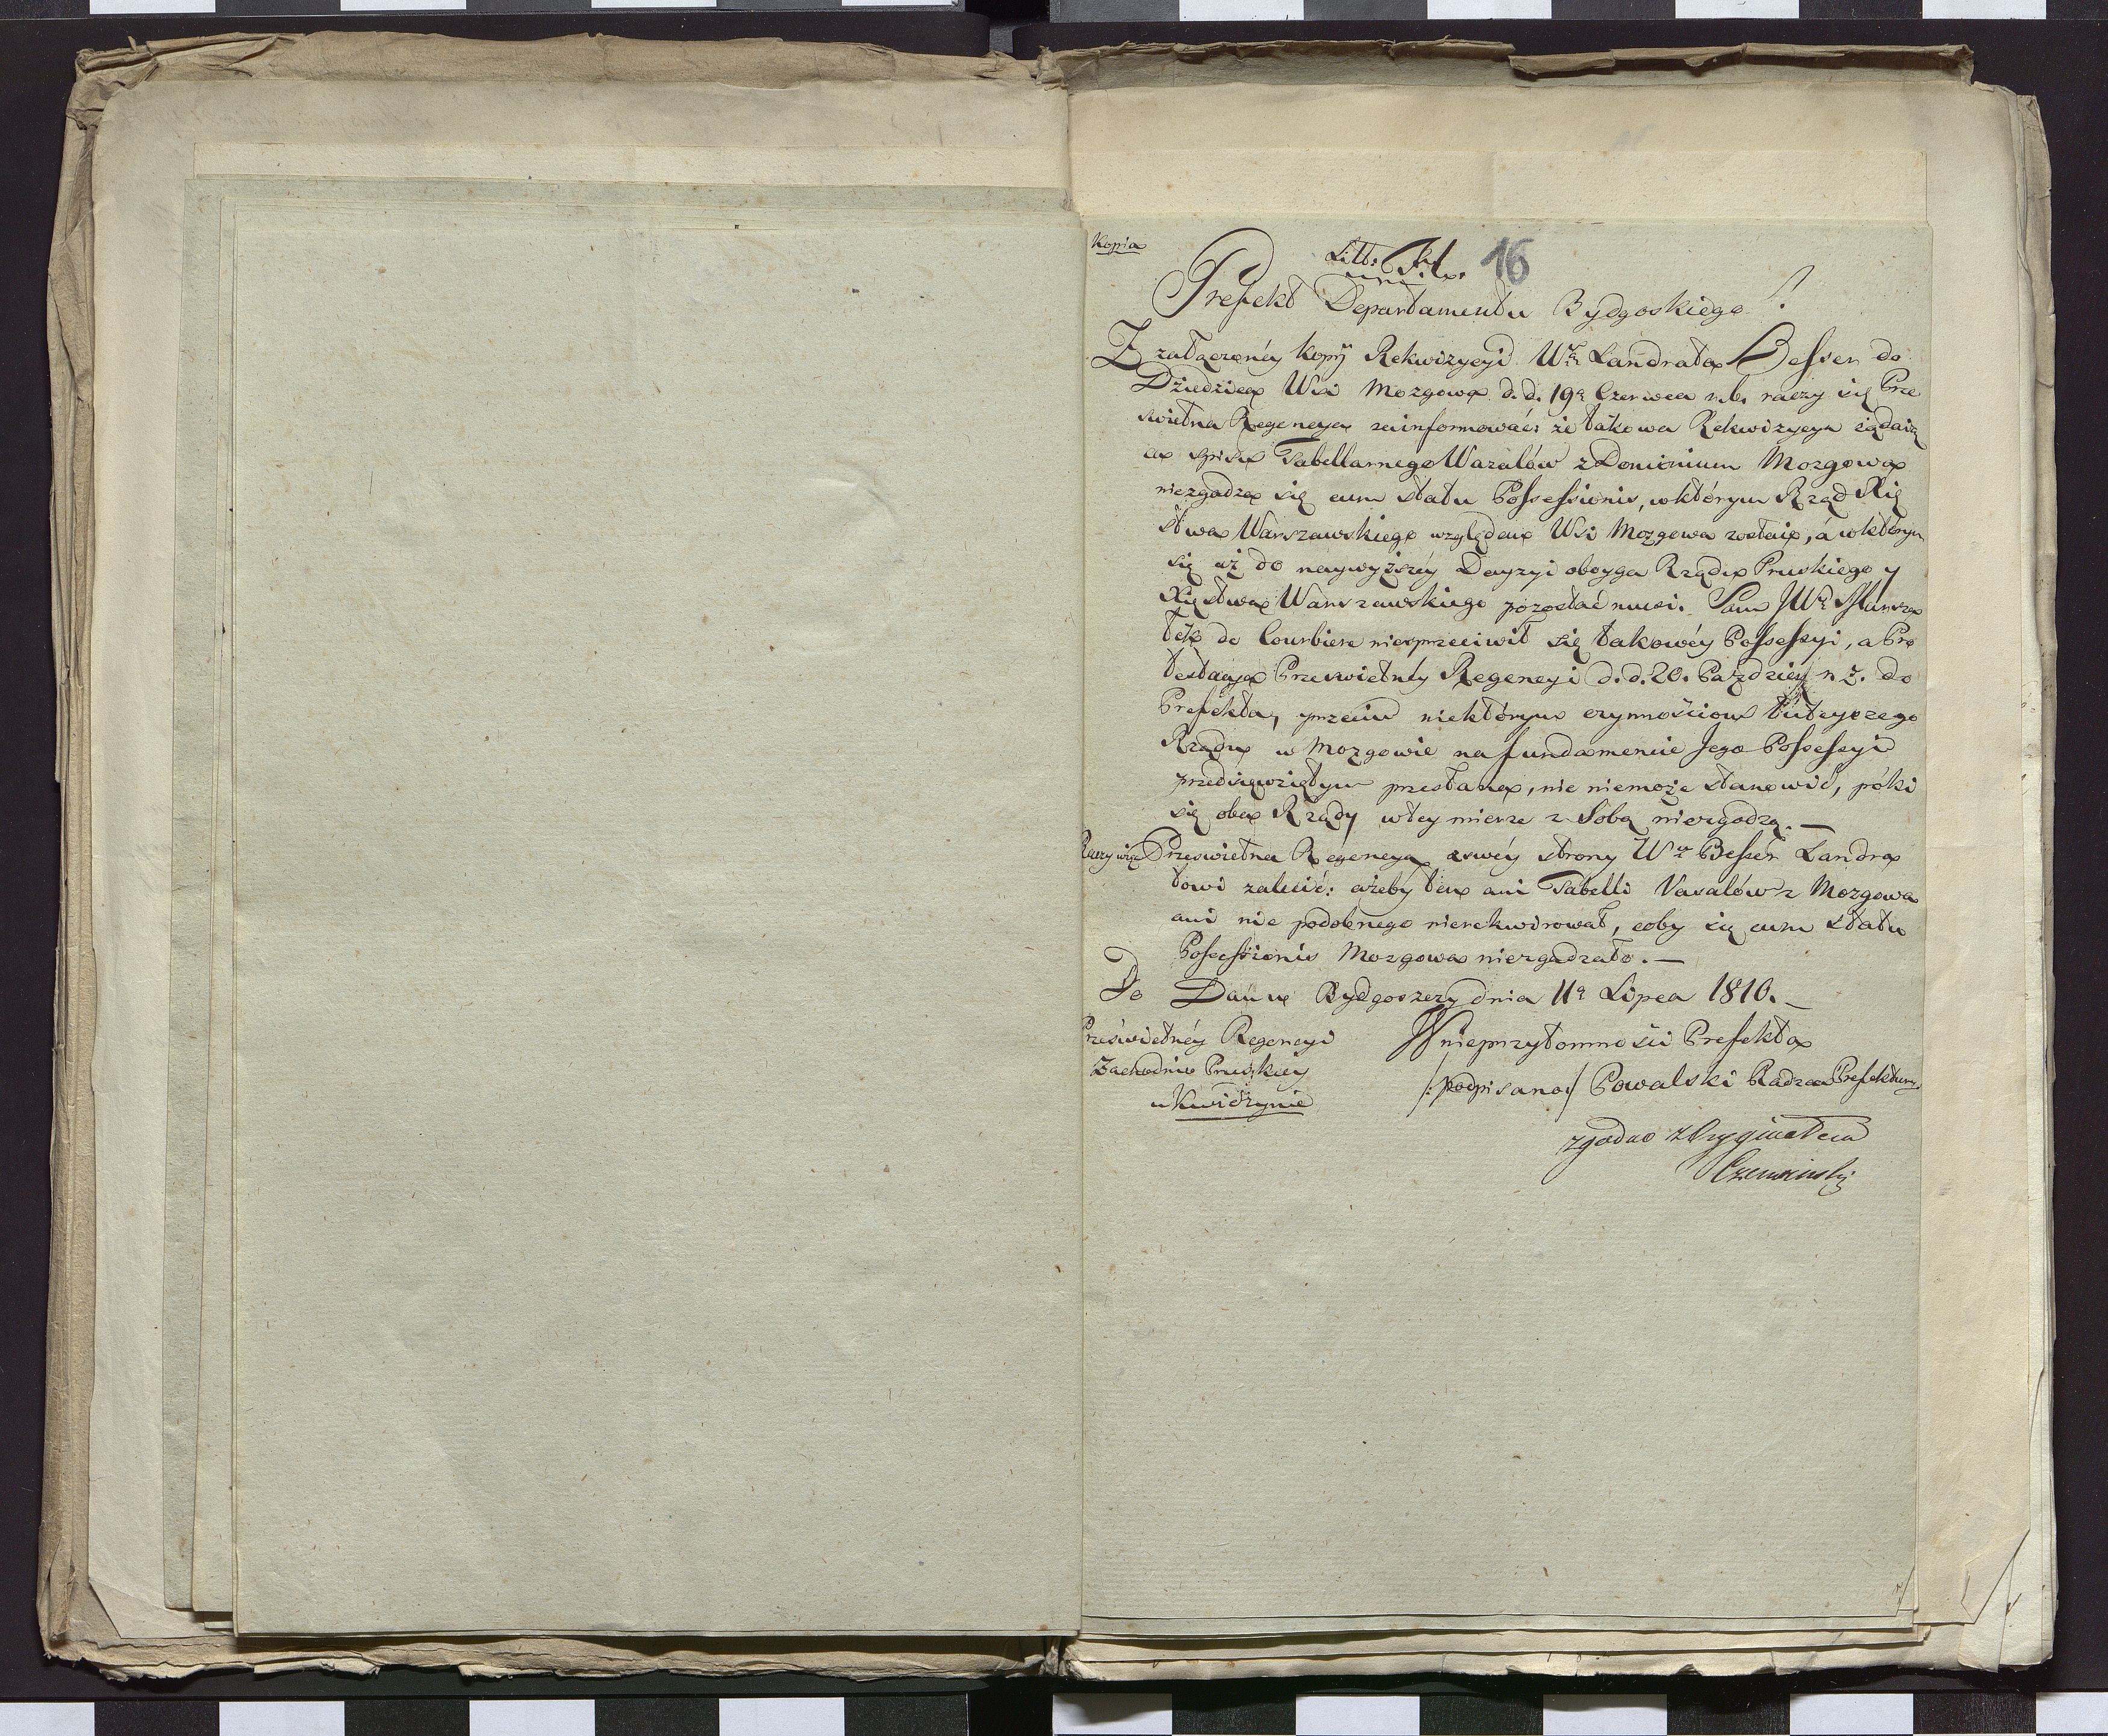 Kopia
Litt: A. 16
Prefekt Departamentu Bydgoskiego!
Z załączonéy kopij Rekwizycyi Wgo Landrata Besser do
Dziedzica Wsi Mozgowa d. d. 19a Czerwca r. b. raczy się Prze
świetna Regencya zainformować: że takowa Rekwizycya żądaią
ca spisu Tabellarnego Wazalów z Dominium Mozgowa
niezgadza się cum statu Possessionis, w którym Rząd Xię
stwa Warszawskiego względem Wsi Mozgowa zostaie, á w którym
się aż do naywyższéy Decyzyi oboyga Rządu Pruskiego y
Xięstwa Warszawskiego pozostać musi. Sam JWy Marsza
łek de Courbiere niesprzeciwił się takowéy Possessyi, a Pro
testacya Prześwietnéy Regencyi d. d. 20. Paździer r. z. do
Prefekta, przeciw niektórym czynnościom tuteyszego
Rządu w Mozgowie na fundamencie Jego Possessyi
przedsięwziętym przesłana, nic niemoże stanowić, póki
się oba Rządy w tey mierze z Sobą niezgodzą. —
Raczy więc Prześwietna Regencya z swéy strony Wu Besser Landra
towi zalecić: ażeby ten ani Tabelli Vasalów z Mozgowa
ani nic podobnego nierekwirował, coby się cum statu
Possessionis Mozgowa niezgadzało. —
Do Dan w Bydgoszczy dnia 11a Lipca 1810. —
Prześwietnéy Regencyi W nieprzytomności Prefekta
Zachodnio Pruskiey /: podpisano :/ Powalski Radzca Prefektury
w Kwidzynie
zgodno z Oryginałem